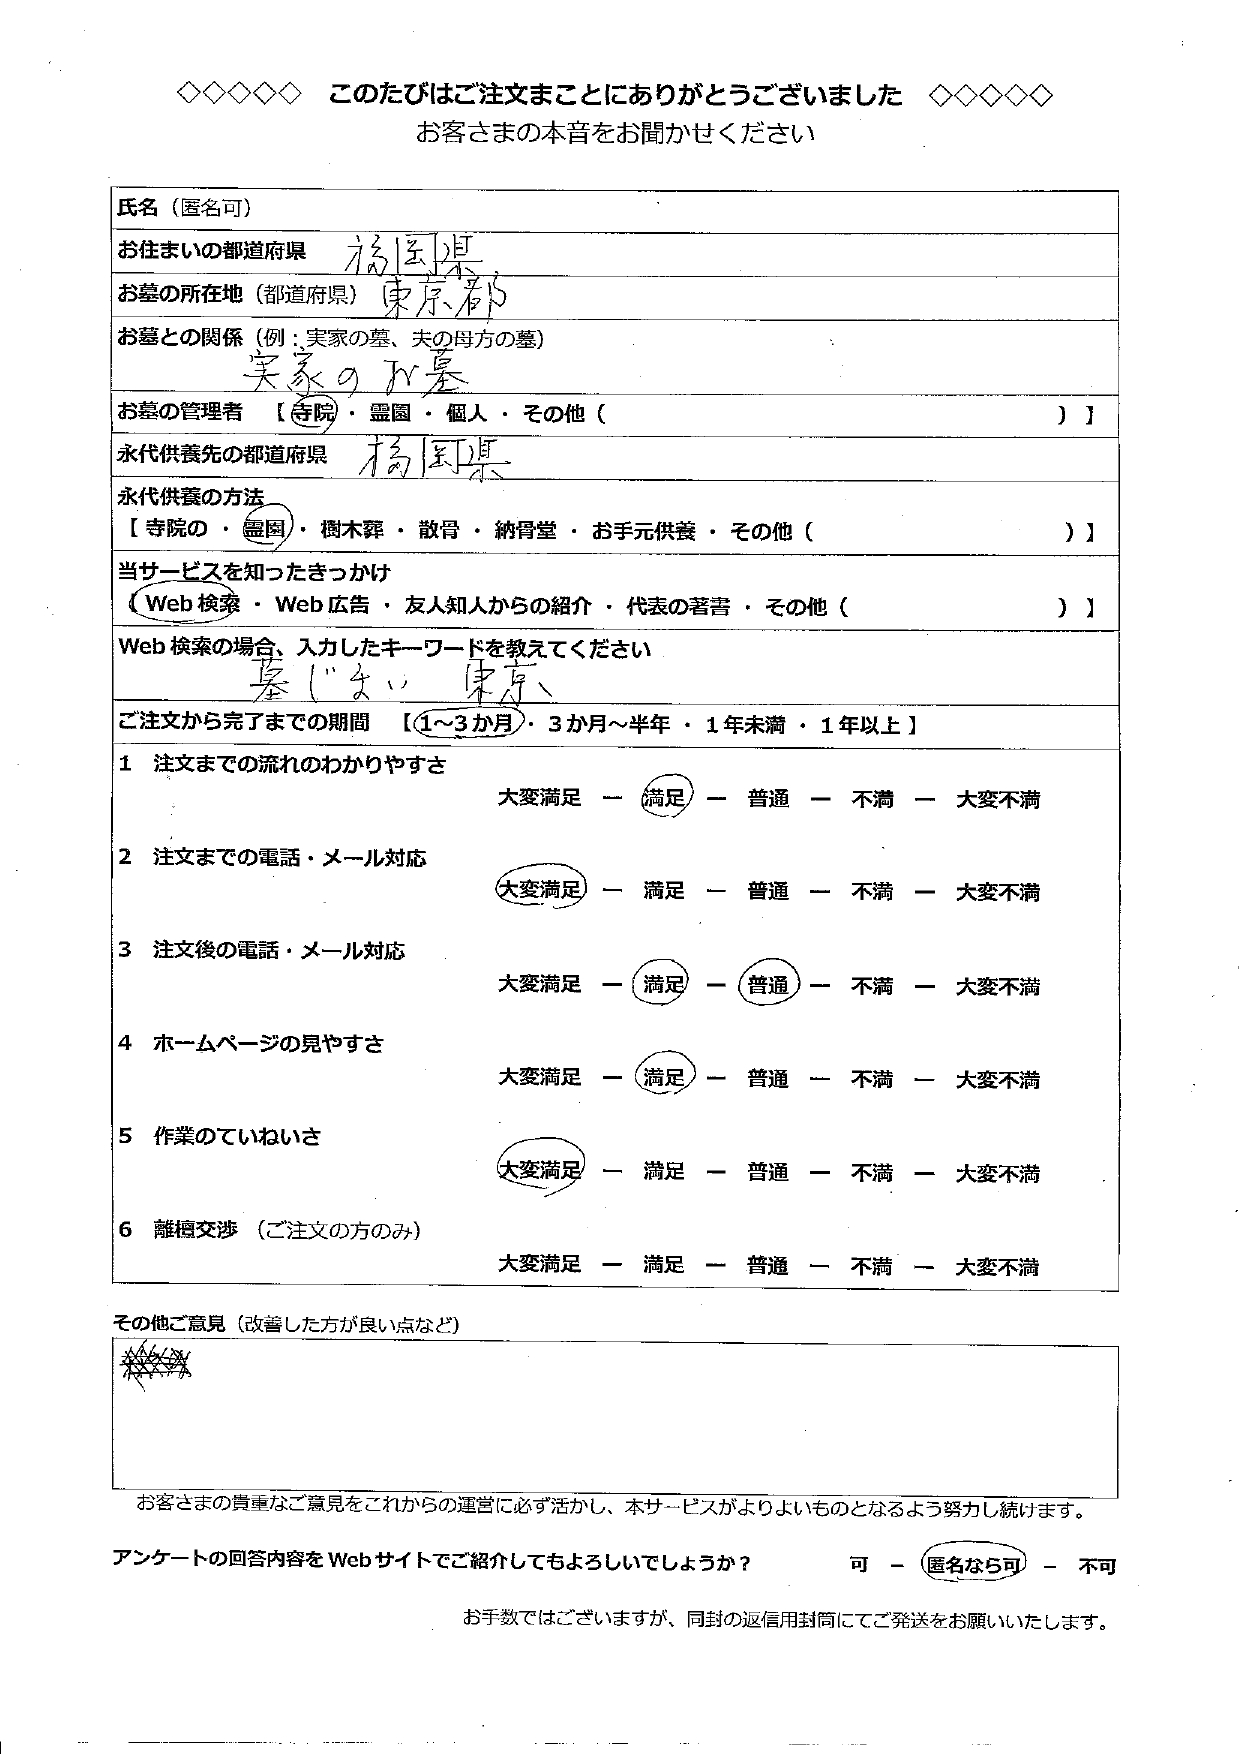 ◇◇◇◇◇　このたびはご注文まことにありがとうございました　◇◇◇◇◇
お客さまの本音をお聞かせください
氏名（匿名可）
お住まいの都道府県　福岡県
お墓の所在地（都道府県）　東京都
お墓との関係（例：実家の墓、夫の母方の墓）
実家のお墓
お墓の管理者　【 寺院 ・ 霊園 ・ 個人 ・ その他（　　　　） 】
永代供養先の都道府県　福岡県
永代供養の方法
【 寺院の ・ 霊園 ・ 樹木葬 ・ 散骨 ・ 納骨堂 ・ お手元供養 ・ その他（　　　　）】
当サービスを知ったきっかけ
【 Web 検索 ・ Web 広告 ・ 友人知人からの紹介 ・ 代表の著書 ・ その他（　　　　） 】
Web 検索の場合、入力したキーワードを教えてください
墓じまい　東京
ご注文から完了までの期間　【 1～3 か月 ・ 3 か月～半年 ・ 1 年未満 ・ 1 年以上 】
1　注文までの流れのわかりやすさ
大変満足　―　満足　―　普通　―　不満　―　大変不満
2　注文までの電話・メール対応
大変満足　―　満足　―　普通　―　不満　―　大変不満
3　注文後の電話・メール対応
大変満足　―　満足　―　普通　―　不満　―　大変不満
4　ホームページの見やすさ
大変満足　―　満足　―　普通　―　不満　―　大変不満
5　作業のていねいさ
大変満足　―　満足　―　普通　―　不満　―　大変不満
6　離檀交渉　（ご注文の方のみ）
大変満足　―　満足　―　普通　―　不満　―　大変不満
その他ご意見（改善した方が良い点など）
お客さまの貴重なご意見をこれからの運営に必ず活かし、本サービスがよりよいものとなるよう努力し続けます。
アンケートの回答内容を Web サイトでご紹介してもよろしいでしょうか？　可　―　匿名なら可　―　不可
お手数ではございますが、同封の返信用封筒にてご発送をお願いいたします。